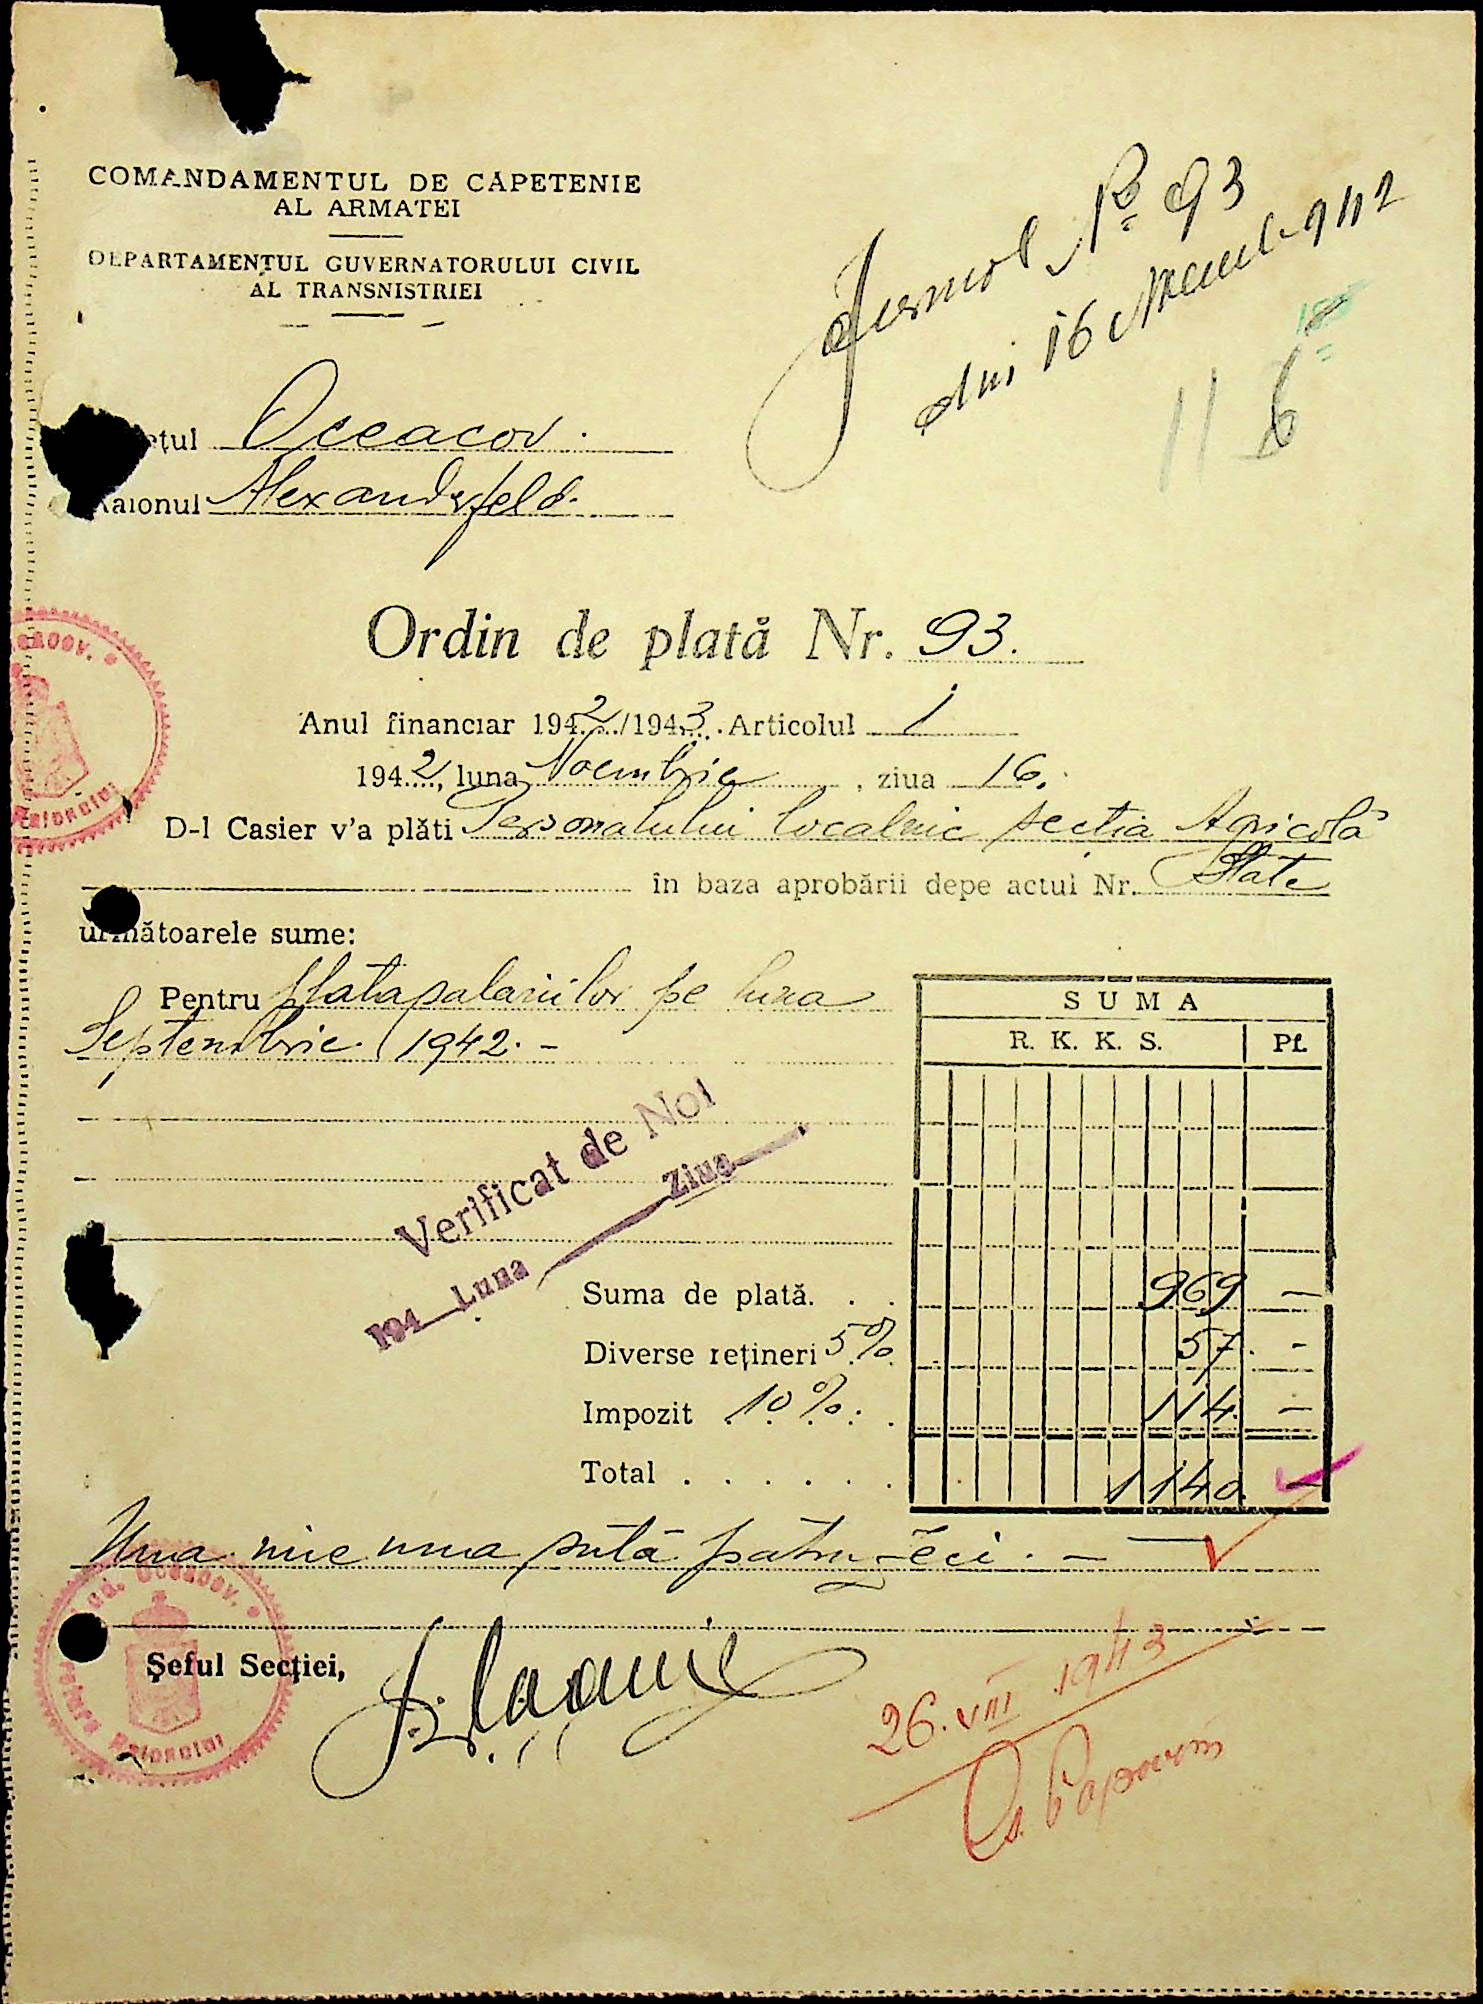 COMANDAMENTUL DE CAPETENIE
AL ARMATEI
DEPARTAMENTUL GUVERNATORULUI CIVIL
AL TRANSNISTRIEI
Jurnal No 93
din 16 Noemb. 942
116
ețul Oceacov.
Raionul Alexanderfeld.
Ordin de plată Nr. 93.
Anul financiar 1942/1943. Articolul 1
1942, luna Noembrie, ziua 16.
D-l Casier v'a plăti Personalului localnic secția Agricolă
în baza aprobării depe actul Nr. State
următoarele sume:
Pentru plata salariilor pe luna
Septembrie 1942. -
SUMA
R. K. K. S. Pf.
Verificat de Noi
194 Luna Ziua
Suma de plată. . . 969 -
Diverse rețineri 5% 57. -
Impozit 10%. . 114. -
Total . . . . . . 1140. -
Una mie una sută patruzeci. -
Șeful Secției,
26.VIII 1943
Raionului
Jud. Oceacov.
Pretura Raionului